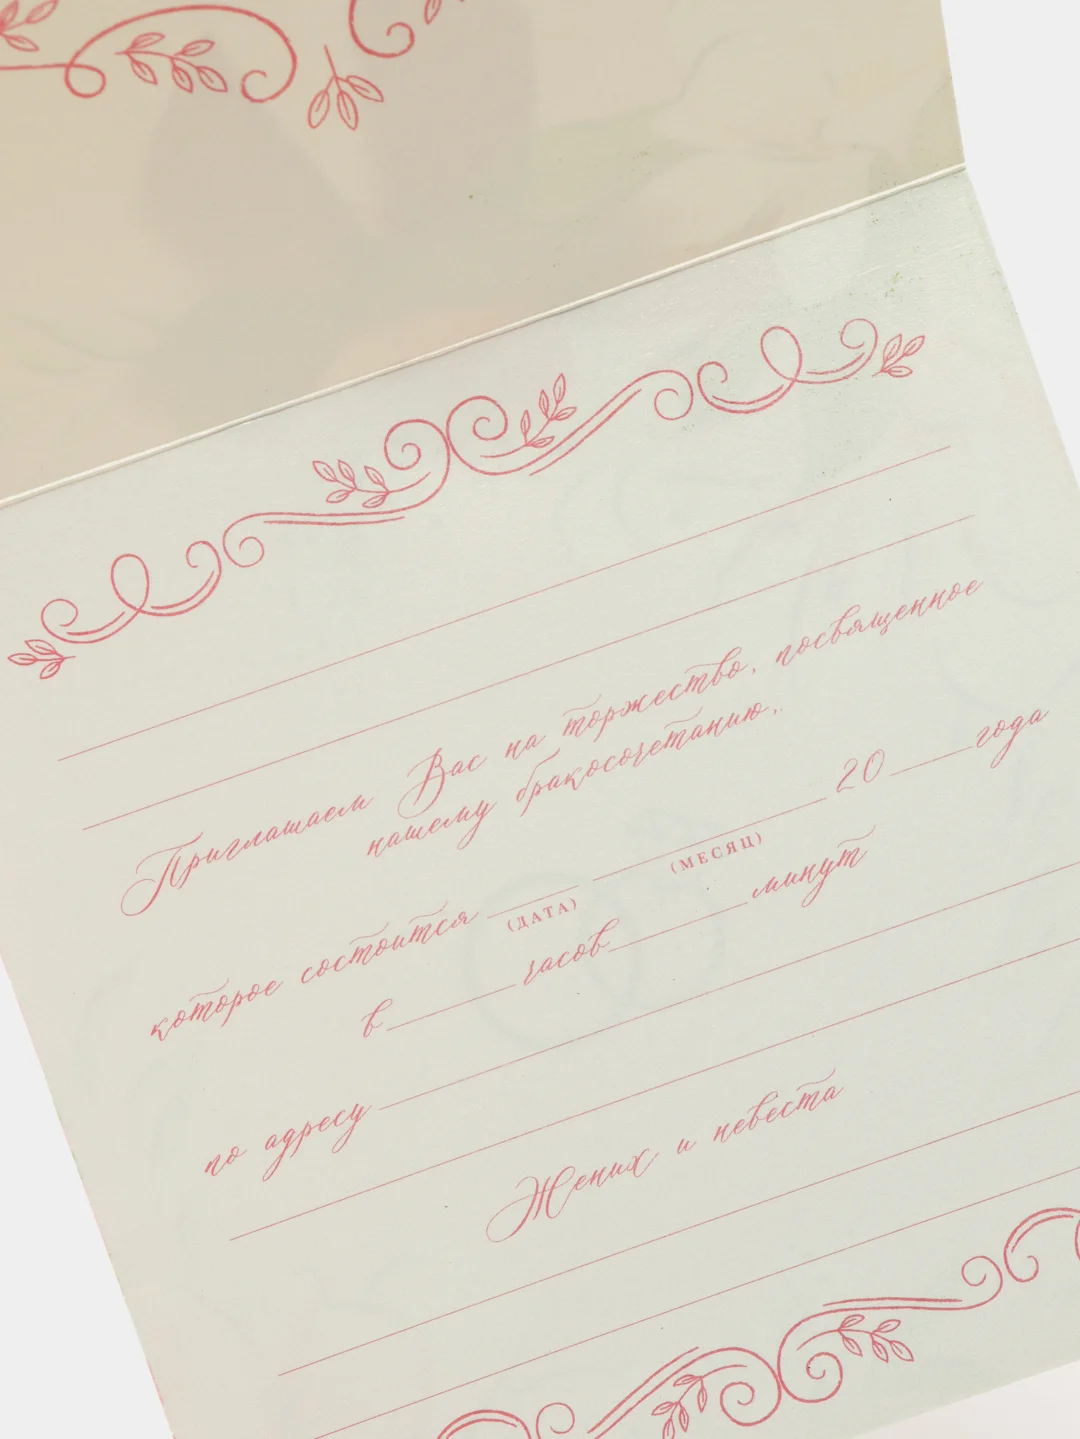 Приглашаем Вас на торжество, посвященное
нашему бракосочетанию,
которое состоится ____ ________ 20____года
(ДАТА) (МЕСЯЦ)
в______часов______минут
по адресу
Жених и невеста